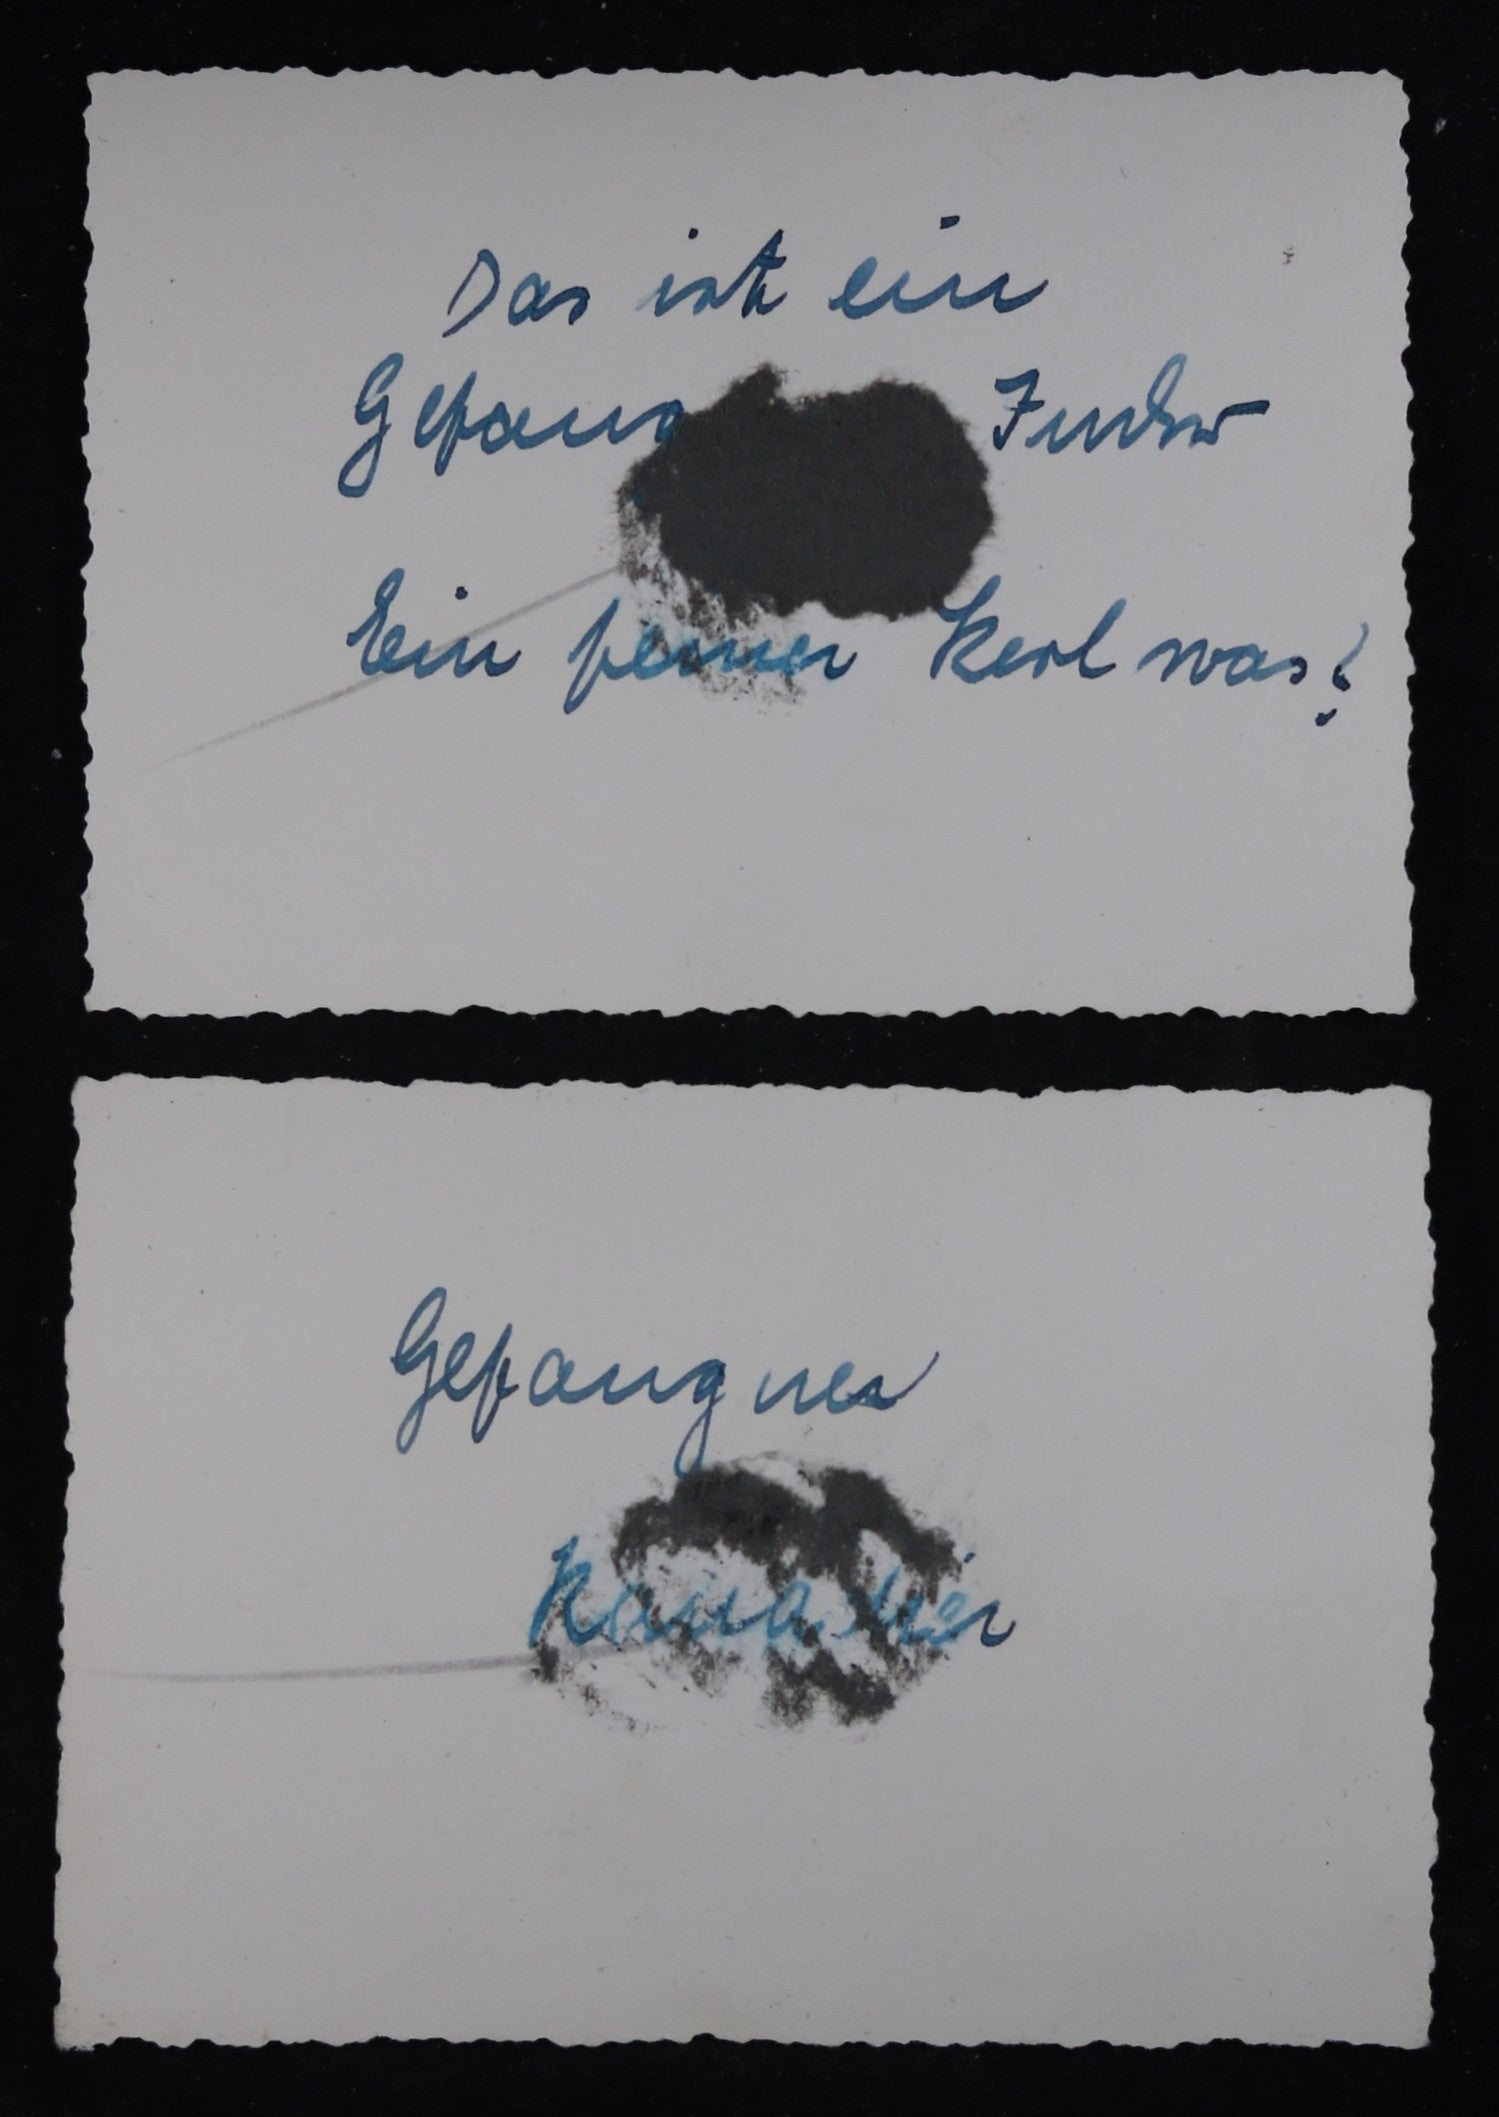 Das ist ein
Gefang Inder
Ein feiner Kerl was?
Gefangner
Kanadier